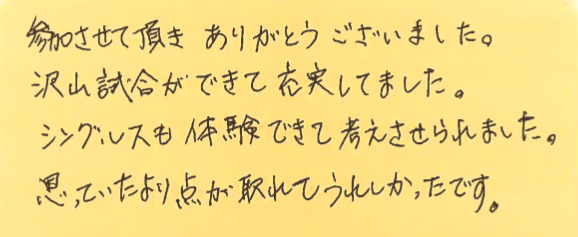 参加させて頂き ありがとうございました。
沢山試合ができて充実してました。
シングルスも体験できて考えさせられました。
思っていたより点が取れてうれしかったです。